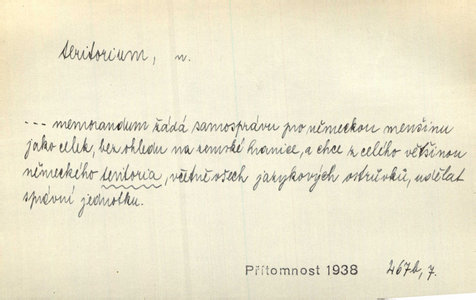 teritorium, n.
--- memorandum žádá samosprávu pro německou menšinu
jako celek, bez ohledu na zemské hranice, a chce z celého většinou
německého teritoria, včetně všech jazykových ostrůvků, udělat
správní jednotku.
Přítomnost 1938 267b, 7.